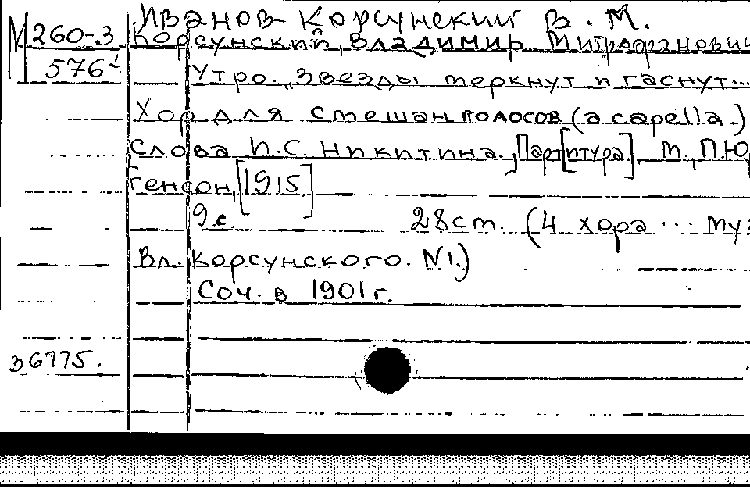 Иванов-Корсунский В. М.
М 260-3 Корсунский, Владимир Митрофанович
576 Утро. "Звезды меркнут и гаснут...
Хор для смешан голосов (a capella.)
Слова И.С. Никитина. Парт[итура]. М., П.Юр
генсон, [1915]
9 с 28 cm. (4 хора ... муз
Вл. Корсунского. N1.)
Соч. в 1901 г.
36775.